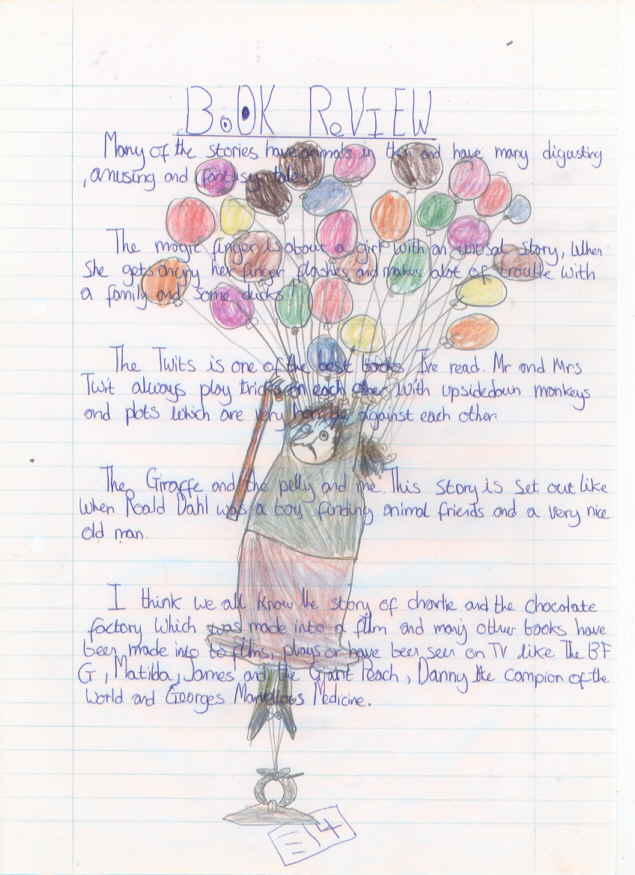 BOOK ReVIEW
Many of the stories have animals in them and have many digusting
, amusing and fantasy tales.
The magic finger is about a girl with an unusal story, When
She gets angry her finger flashes and makes alot of trouble with
a family and some ducks.
The Twits is one of the best books I've read. Mr and Mrs
Twit always play tricks on each other with upsidedown monkeys
and plots which are very horrible against each other.
The Giraffe and the pelly and me. This story is set out like
When Roald Dahl was a boy finding animal friends and a very nice
old man.
I think we all know the story of charlie and the chocolate
factory which was made into a film and many other books have
been made into to films, plays or have been seen on TV like The BF
G, Matilda, James and the Giant Peach, Danny the campion of the
world and Georges Marvellous Medicine.
4